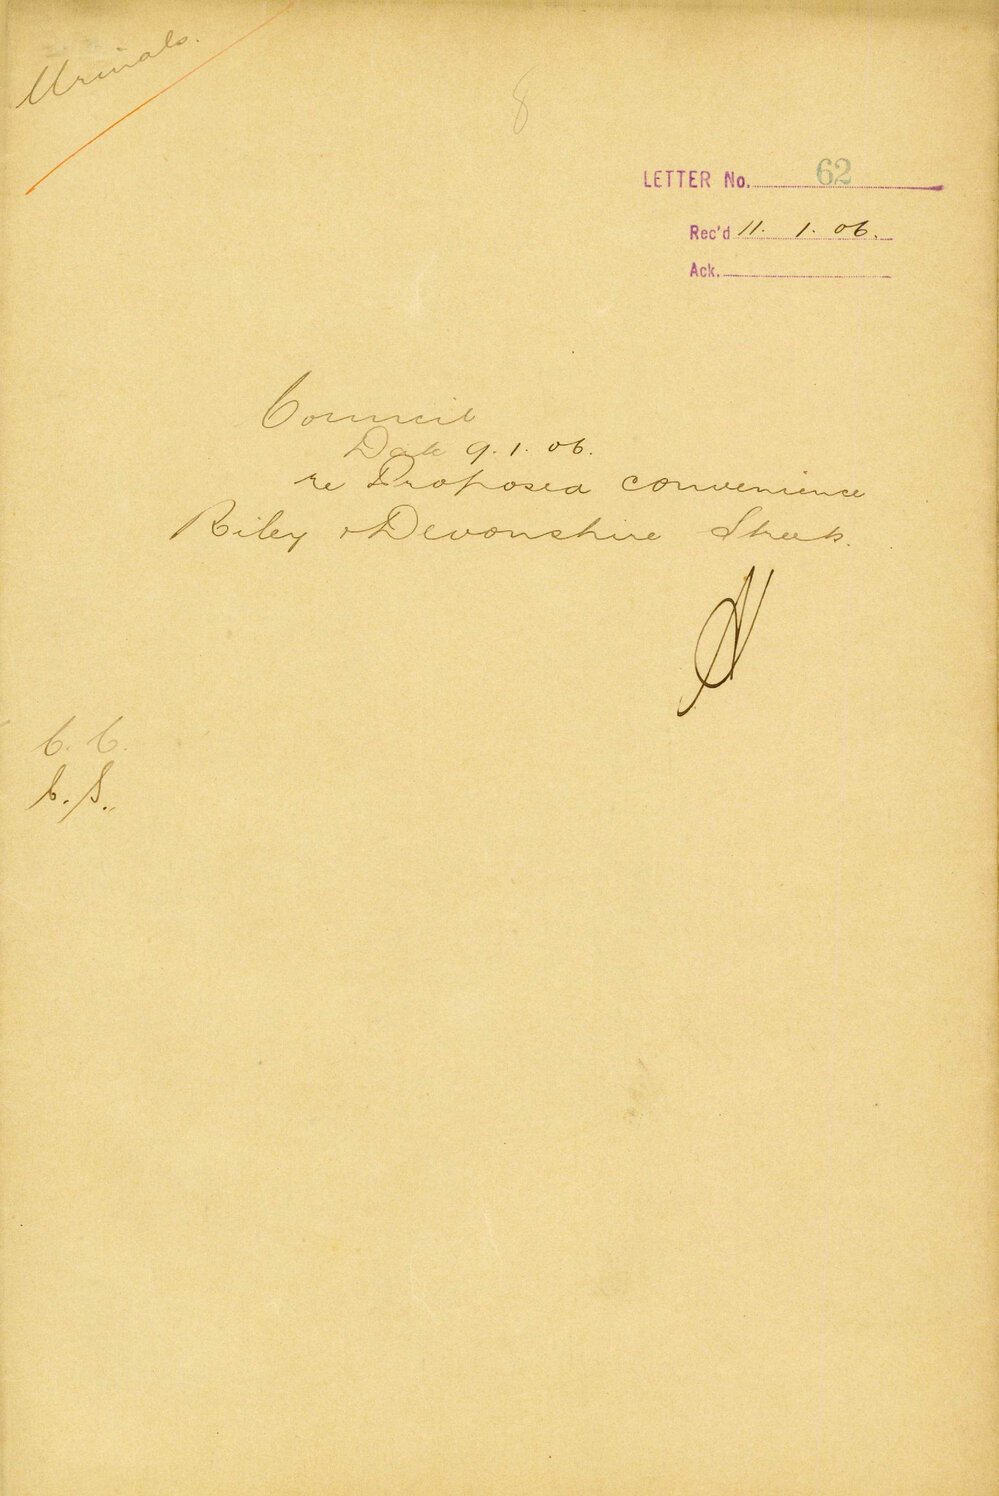 Urinals.
8
LETTER No. 62
Rec'd 11. 1. 06.
Ack.
Council
Date 9. 1. 06.
re Proposed convenience
Riley & Devonshire Streets.
C. C.
C. S.